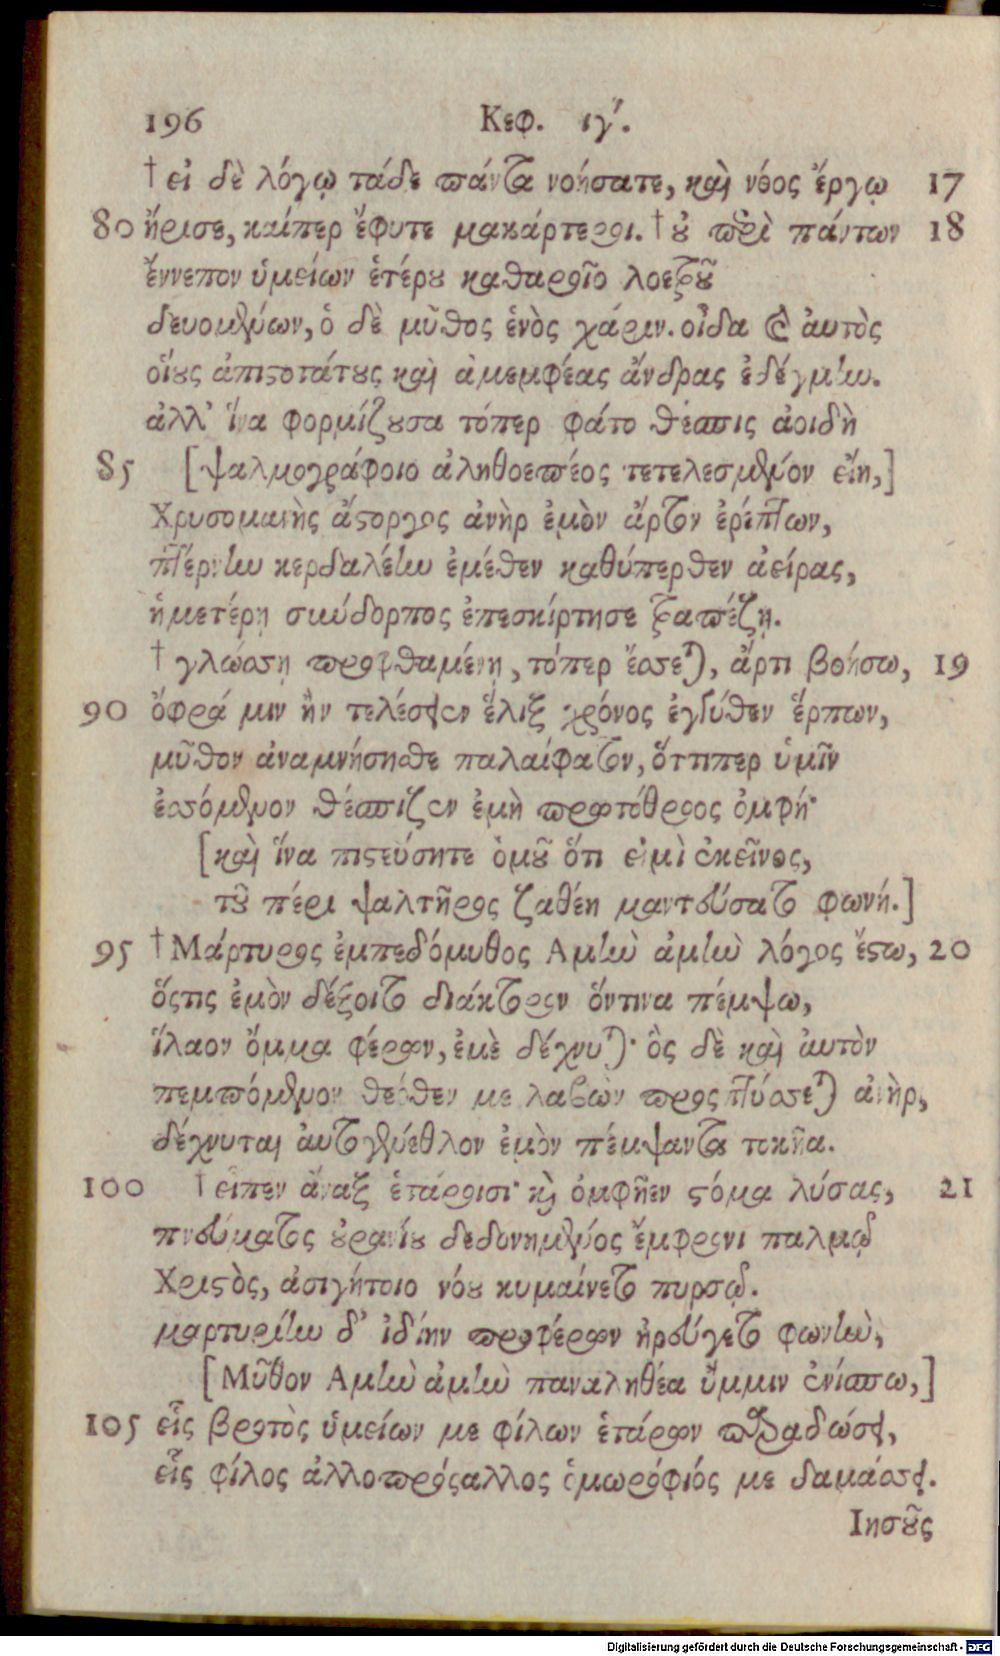 196 Κεφ. ιγ΄.
† εἰ δὲ λόγῳ τάδε πάντα νοήσατε, καὶ νόος ἔργῳ 17
80 ἤρισε, καίπερ ἔφυτε μακάρτεροι. † οὐ περὶ πάντων 18
ἔννεπον ὑμείων ἑτέρου καθαροῖο λοετροῦ
δευομένων, ὁ δὲ μῦθος ἑνὸς χάριν. οἶδα καὶ αὐτὸς
οἵους ἀπιστοτάτους καὶ ἀμεμφέας ἄνδρας ἐδέγμην.
ἀλλ' ἵνα φορμίζουσα τόπερ φάτο θέσπις ἀοιδὴ
85 [ψαλμογράφοιο ἀληθοεπέος τετελεσμένον εἴη,]
Χρυσομανὴς ἄστοργος ἀνὴρ ἐμὸν ἄρτον ἐρέπτων,
πτέρνην κερδαλέην ἐμέθεν καθύπερθεν ἀείρας,
ἡμετέρῃ σύνδορπος ἐπεσκίρτησε τραπέζῃ.
† γλώσσῃ προφθαμένῃ, τόπερ ἔσσεται, ἄρτι βοήσω, 19
90 ὄφρά μιν ἢν τελέσειεν ἕλιξ χρόνος ἐγγύθεν ἕρπων,
μῦθον ἀναμνήσησθε παλαίφατον, ὅττιπερ ὑμῖν
ἐσσόμενον θέσπιζεν ἐμὴ πρωτόθροος ὀμφή·
[καὶ ἵνα πιστεύσητε ὁμοῦ ὅτι εἰμὶ ἐκεῖνος,
τοῦ πέρι ψαλτῆρος ζαθέη μαντεύσατο φωνή.]
95 † Μάρτυρος ἐμπεδόμυθος Αμὴν ἀμὴν λόγος ἔστω, 20
ὅστις ἐμὸν δέξοιτο διάκτορον ὅντινα πέμψω,
ἵλαον ὄμμα φέρων, ἐμὲ δέχνυται· ὃς δὲ καὶ αὐτὸν
πεμπόμενον θεόθεν με λαβὼν προσπτύσσεται ἀνὴρ,
δέχνυται αὐτογένεθλον ἐμὸν πέμψαντα τοκῆα.
100 † εἶπεν ἄναξ ἑτάροισι· καὶ ὀμφῆεν στόμα λύσας, 21
πνεύματος οὐρανίου δεδονημένος ἔμφρονι παλμῷ
Χριστὸς, ἀσιγήτοιο νόου κυμαίνετο πυρσῷ.
μαρτυρίην δ' ἰδίην προφέρων ἠρεύγετο φωνὴν,
[Μῦθον Αμὴν ἀμὴν παναληθέα ὔμμιν ἐνίσπω,]
105 εἷς βροτὸς ὑμείων με φίλων ἑτάρων παραδώσει,
εἷς φίλος ἀλλοπρόσαλλος ὁμωρόφιός με δαμάσσει.
Ιησοῦς
Digitalisierung gefördert durch die Deutsche Forschungsgemeinschaft - DFG